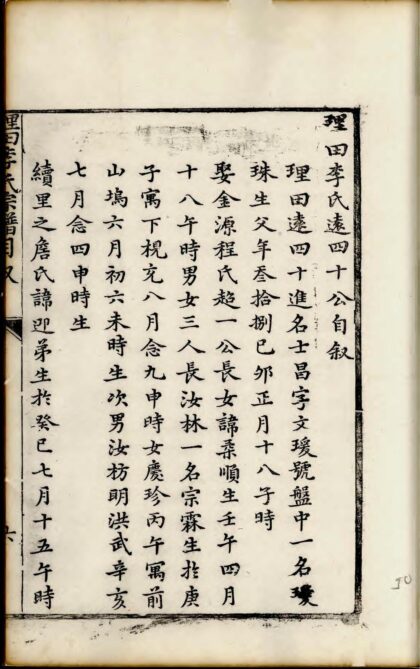 理田李氏遠四十公自叙
理田遠四十進名士昌字文瑗號盤中一名瓊
珠生父年叁拾捌己卯正月十八子時
娶金源程氏超一公長女諱桑順生壬午四月
十八午時男女三人長汝林一名宗霖生於庚
子寓下槻充八月念九申時女慶珍丙午寓前
山塢六月初六未時生次男汝枋明洪武辛亥
七月念四申時生
續里之詹氏諱迎弟生於癸巳七月十五午時
理田李氏宗譜 自叙
六
10